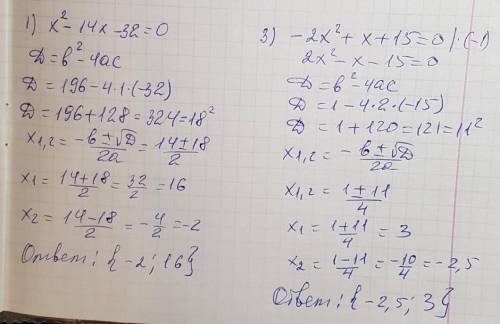 1) x² - 14x - 32 = 0
D = b² - 4ac
D = 196 - 4·1·(-32)
D = 196 + 128 = 324 = 18²
x₁,₂ = -b ± √D / 2a = 14 ± 18 / 2
x₁ = 14 + 18 / 2 = 32 / 2 = 16
x₂ = 14 - 18 / 2 = -4 / 2 = -2
Ответ: {-2; 16}
3) -2x² + x + 15 = 0 /·(-1)
2x² - x - 15 = 0
D = b² - 4ac
D = 1 - 4·2·(-15)
D = 1 + 120 = 121 = 11²
x₁,₂ = -b ± √D / 2a
x₁,₂ = 1 ± 11 / 4
x₁ = 1 + 11 / 4 = 3
x₂ = 1 - 11 / 4 = -10 / 4 = -2,5
Ответ: {-2,5; 3}